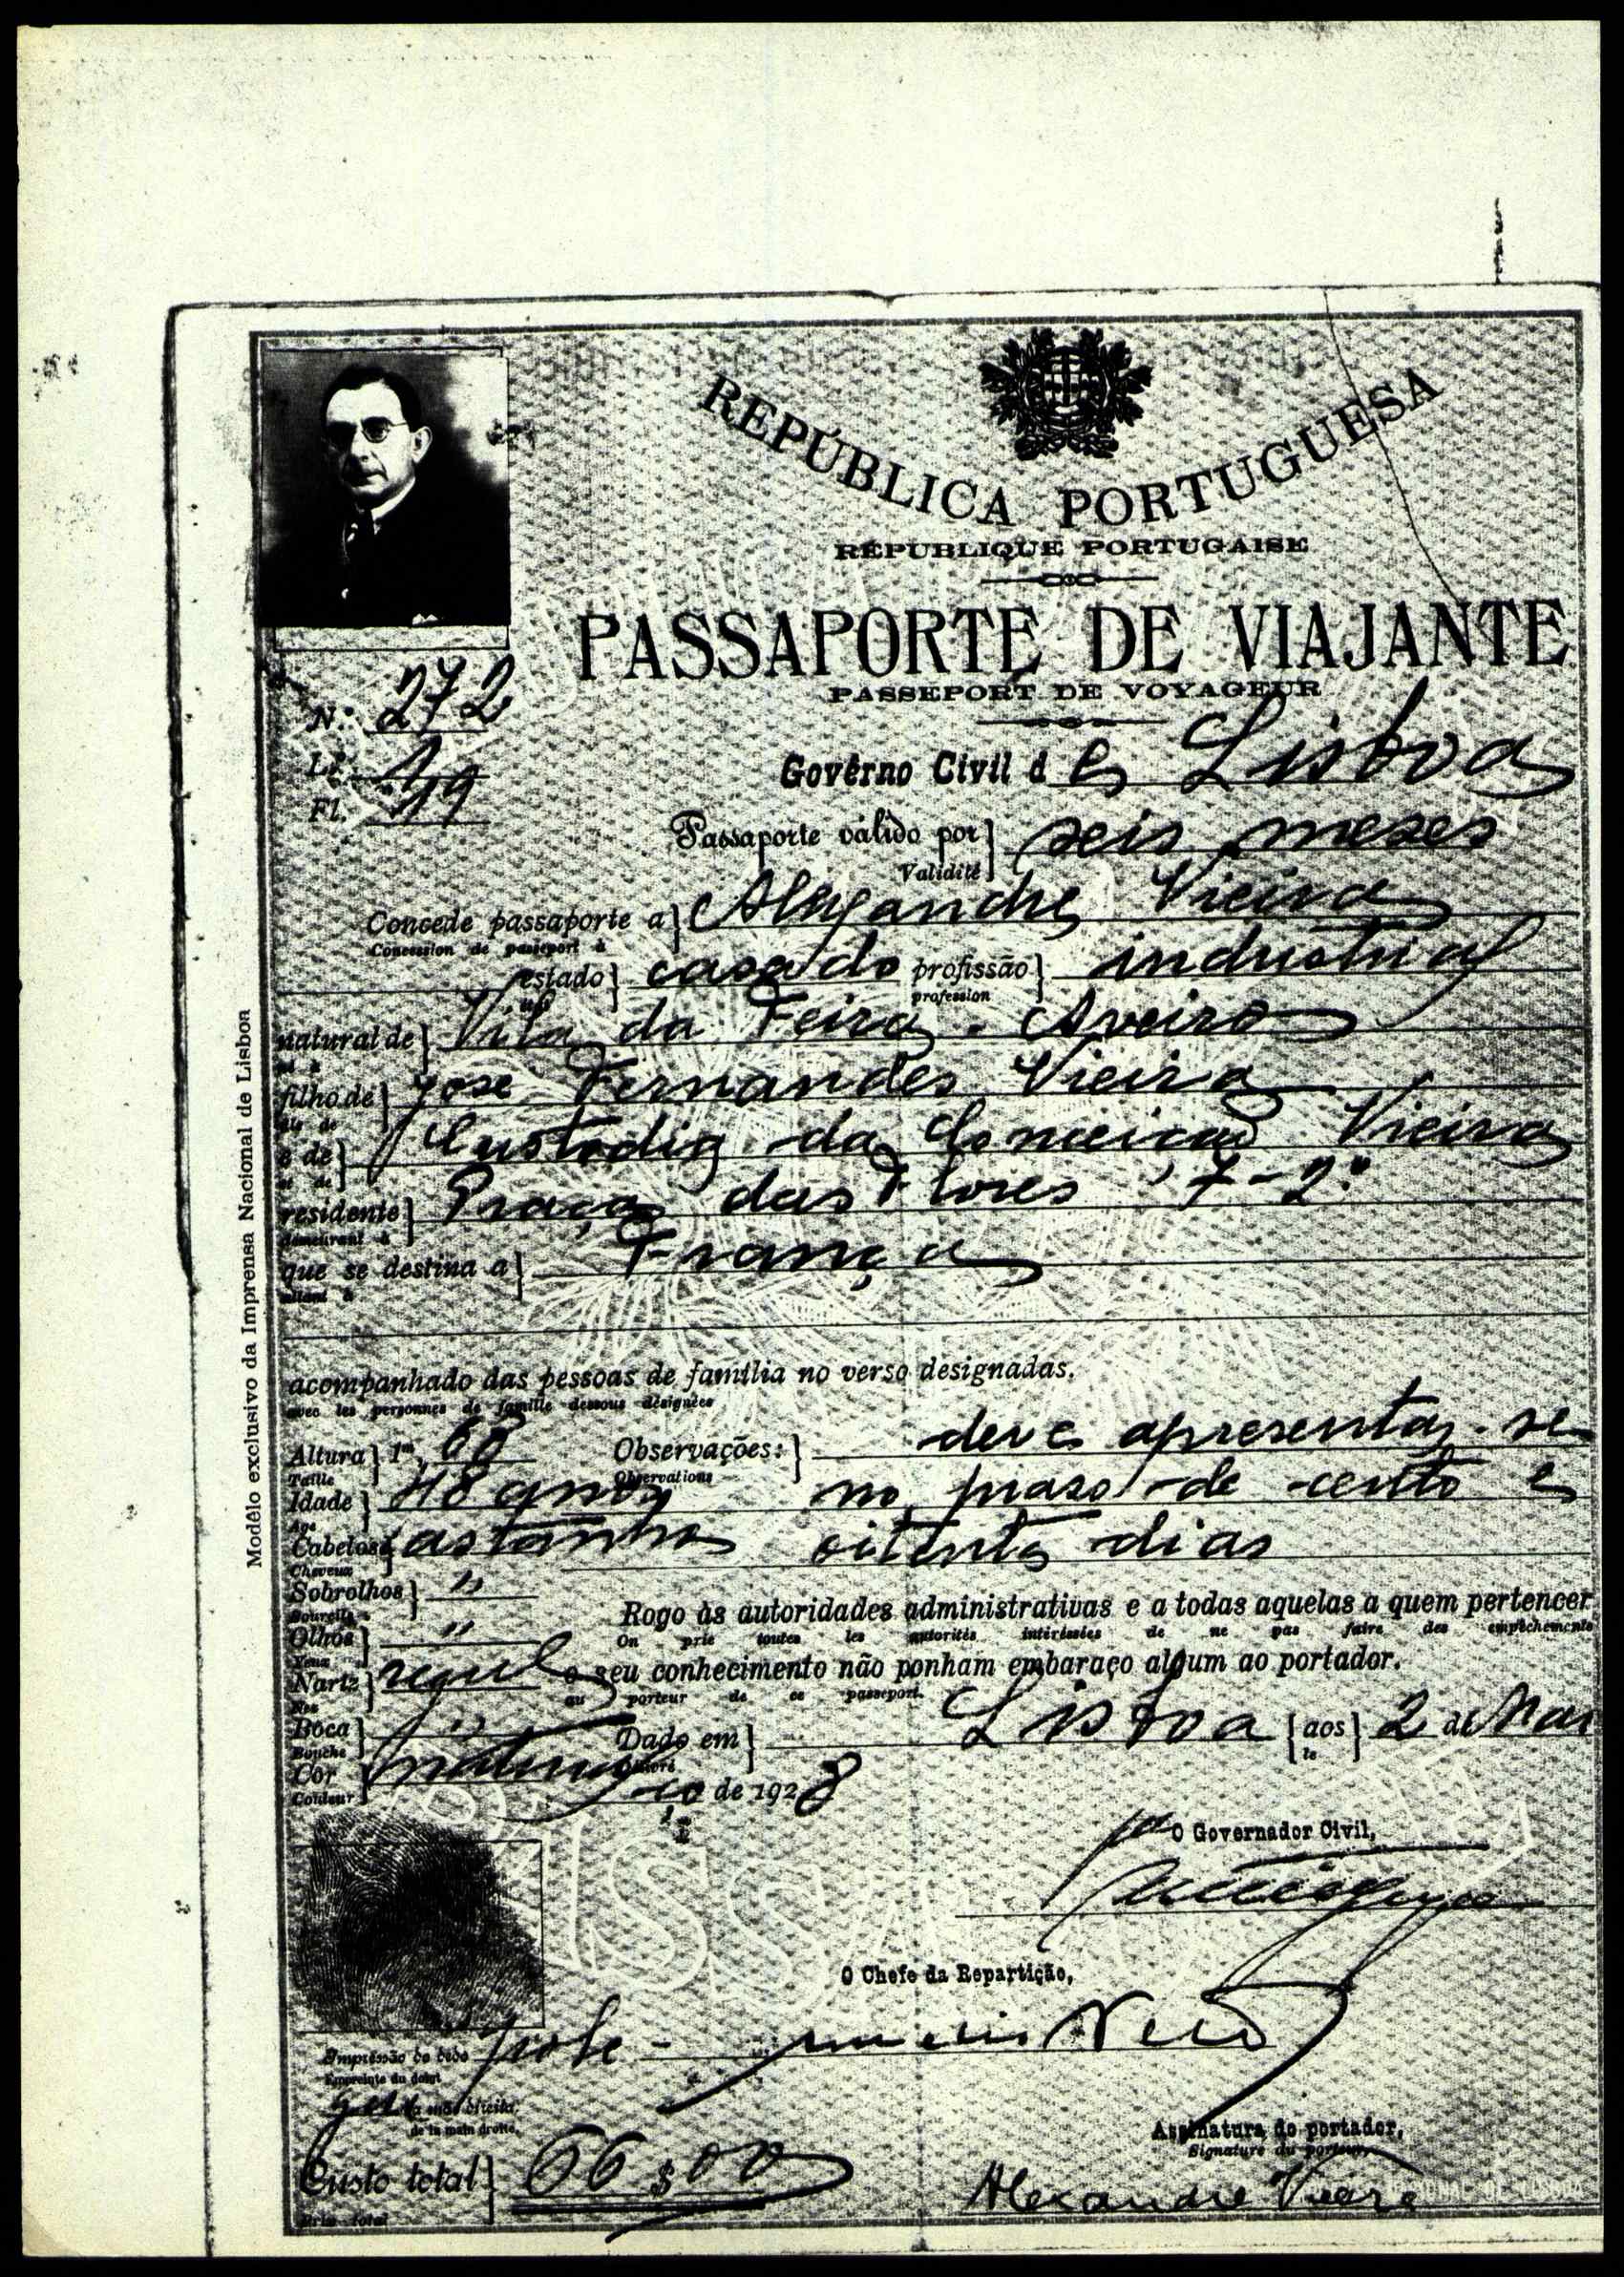 REPÚBLICA PORTUGUESA
RÉPUBLIQUE PORTUGAISE
PASSAPORTE DE VIAJANTE
PASSEPORT DE VOYAGEUR
N.º 272
L.º 1
Fl. 119
Govêrno Civil de Lisboa
Passaporte válido por } seis meses
Validité
Concede passaporte a } Alexandre Vieira
Concession de passeport à
estado } casado profissão } industrial
profession
natural de } Vila da Feira - Aveiro
filho de } José Fernandes Vieira
e de } Custodia da Conceição Vieira
et de
residente } Praça das Flores, 7-2.º
demeurant à
que se destina a } França
allant à
acompanhado das pessoas de família no verso designadas.
avec les personnes de famille dessous désignées
Altura } 1m,68 Observações: } deve apresentar-se
Taille Observations
Idade } 48 anos no praso de cento e
Age
Cabelos } castanhos oitenta dias
Cheveux
Sobrolhos } "
Sourcils
Rogo às autoridades administrativas e a todas aquelas a quem pertencer
On prie toutes les autorités intéressées de ne pas faire des empêchements
Olhos } "
Yeux
Nariz } regul o seu conhecimento não ponham embaraço algum ao portador.
Nez au porteur de ce passeport.
Boca } " Dado em } Lisboa { aos } 2 de Mar
Bouche le
Cor } natural ço de 1928
Couleur
O Governador Civil,
O Chefe da Repartição,
Impressão do dedo
Empreinte du doigt
da mão direita,
de la main droite,
Custo total } 66$00
Prix total
Assinatura do portador,
Signature du porteur,
Alexandre Vieira
Modêlo exclusivo da Imprensa Nacional de Lisboa